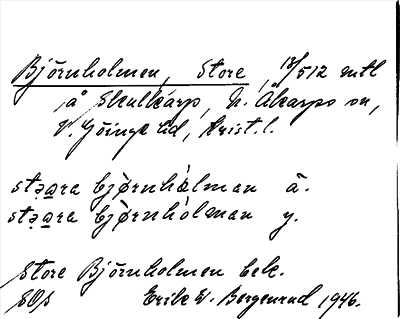 Björnholmen, Store, 13/512 mtl
å Skulkarp, N. Åkarps sn,
V. Göinge hd, Krist. l.
stǝara bjørnhȧlman ä.
stǝara bjørnhȯlman y.
Store Björnholmen bek.
SOS Erik W. Bergenrud 1946.